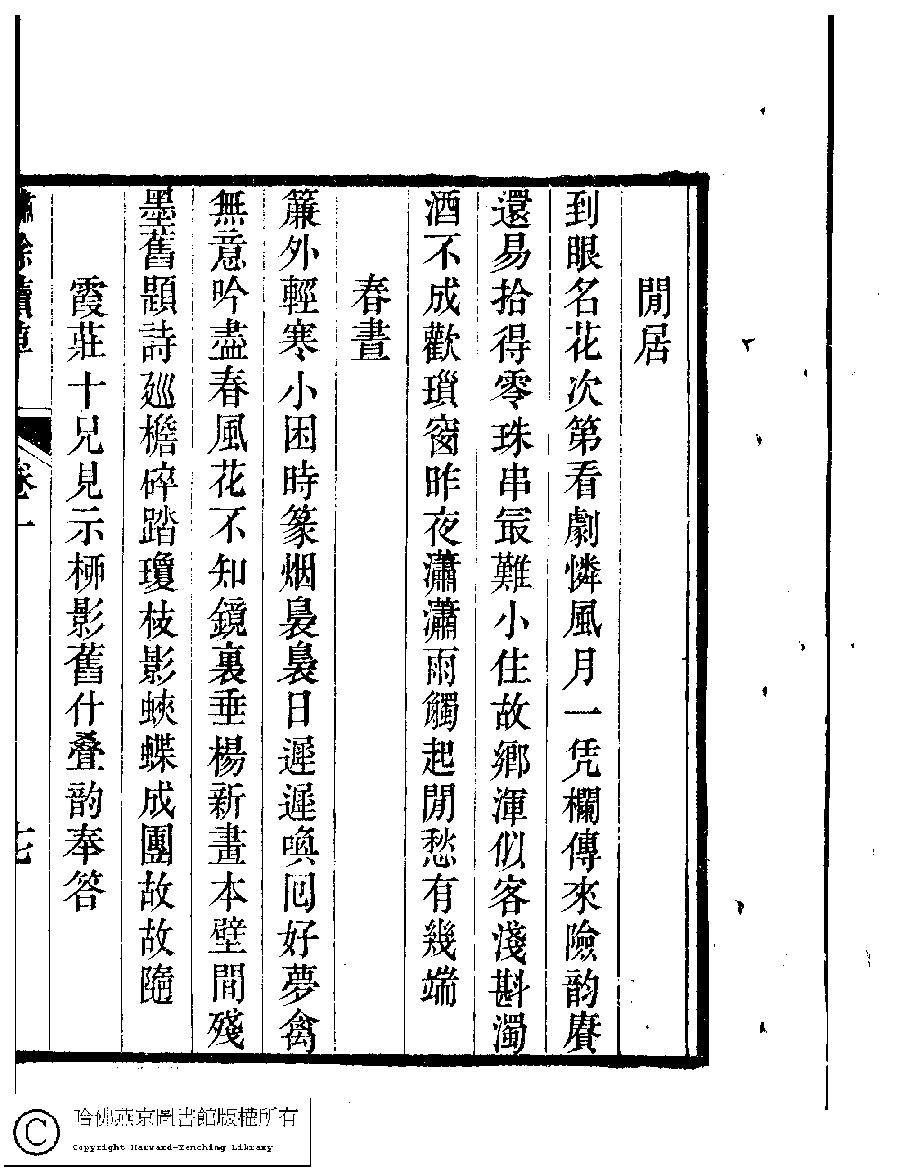 閒居
到眼名花次第看劇憐風月一凭欄傳來險韵賡
還易拾得零珠串最難小住故鄉渾似客淺斟濁
酒不成歡瑣窗昨夜瀟瀟雨觸起閒愁有幾端
春晝
簾外輕寒小困時篆烟裊裊日遲遲喚囘好夢禽
無意吟盡春風花不知鏡裏垂楊新畫本壁間殘
墨舊題詩廵檐碎踏瓊枝影蛺蝶成團故故隨
霞莊十兄見示桺影舊什叠韵奉答
卷一
七
哈佛燕京圖書館版權所有
Copyright Harvard-Yenching Library